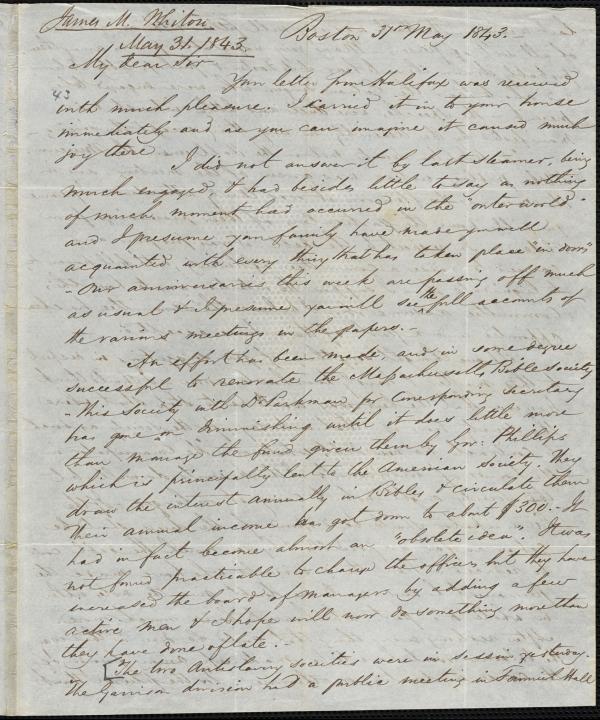 James M. Whiton
May 31. 1843.
Boston 31st May 1843.-
My dear Sir
43
Your letter from Halifax was received
with much pleasure. I carried it in to your house
immediately and as you can imagine it caused much
joy there
I did not answer it by last steamer, being
much engaged, & had besides little to say as nothing
of much moment had occurred in the "outer world"
and I presume your family have made you well
acquainted with every thing that has taken place "in doors"
- Our anniversaries this week are passing off much
as usual & I presume you will see the full accounts of
the various meetings in the papers.-
An effort has been made, and in some degree
successful to renovate the Massachusetts Bible Society
- This Society with Dr Parkman for Corresponding Secretary
has gone on diminishing until it does little more
than manage the fund given them by Gov: Phillips
which is principally lent to the American Society. They
draw the interest annually in Bibles & circulate them
Their annual income has got down to about $300.- It
had in fact become almost an "obsolete idea". It was
not found practicable to change the officers, but they have
increased the board of Managers by adding a few
active men & I hope will now do something more than
they have done of late.-
[The two Antislavery societies were in session yesterday.
The Garrison division had a public meeting in Faneuil Hall